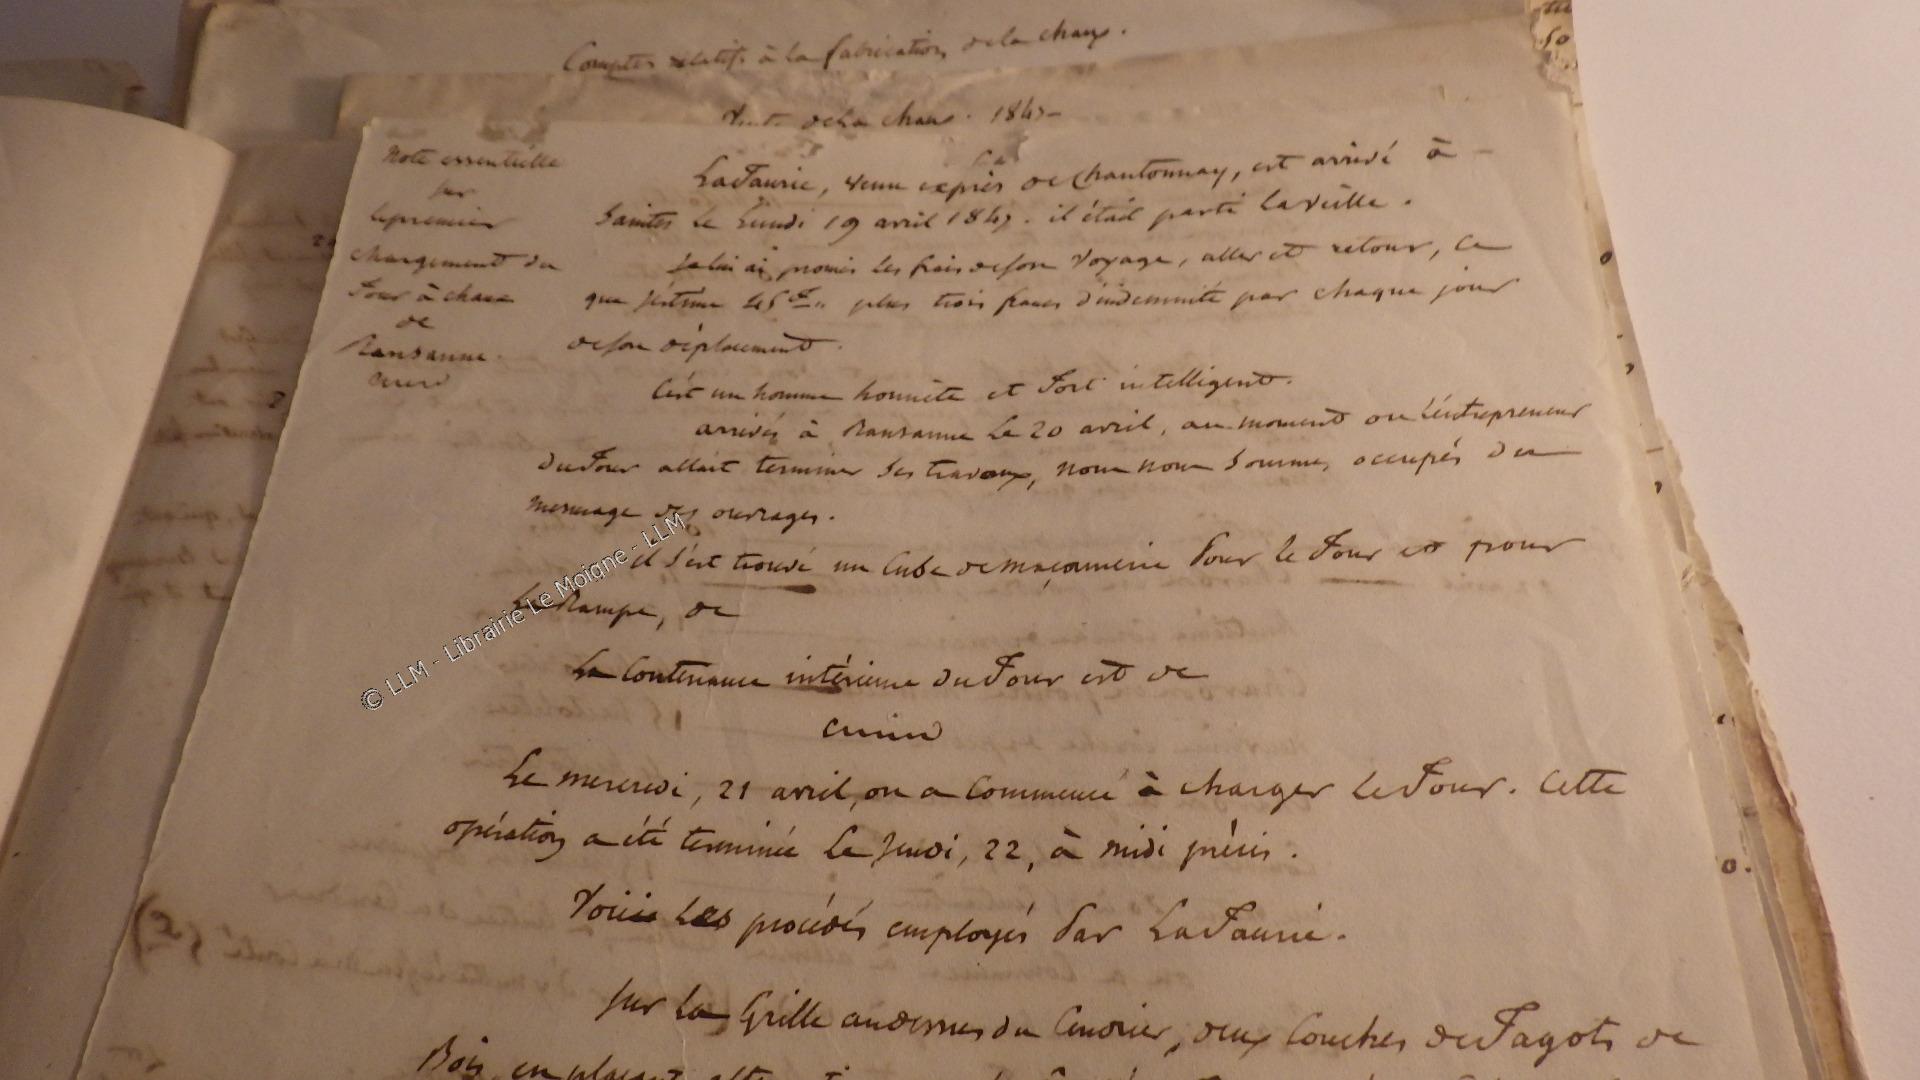 Comptes relatifs à la fabrication de la chaux.
Vente de la chaux. 1847
Note essentielle
sur
le premier
chargement du
four à chaux
de
Ransanne.
LaFaurie, venu exprès de Chantonnay, est arrivé à
Saintes le Lundi 19 avril 1847. il était parti la veille.
Je lui ai promis les frais de son voyage, aller et retour, ce
que j'estime plus trois francs d'indemnité par chaque jour
de son déplacement.
C'est un homme honnête et fort intelligent.
arrivés à Ransanne le 20 avril, au moment ou l'entrepreneur
du Four allait terminer ses travaux, nous nous sommes occupés du
mesurage des ouvrages.
il s'est trouvé un cube de maçonnerie pour le Four et pour
La Rampe, de
La Contenance intérieure du Four est de
Le mercredi, 21 avril, on a commencé à charger le Four. Cette
opération a été terminée le Jeudi, 22, à midi précis.
Voici les procédés employés par LaFaurie.
sur la Grille au dessus du Cendrier, deux couches de Fagots de
Bois, en plaçant
© LLM - Librairie Le Moigne - LLM